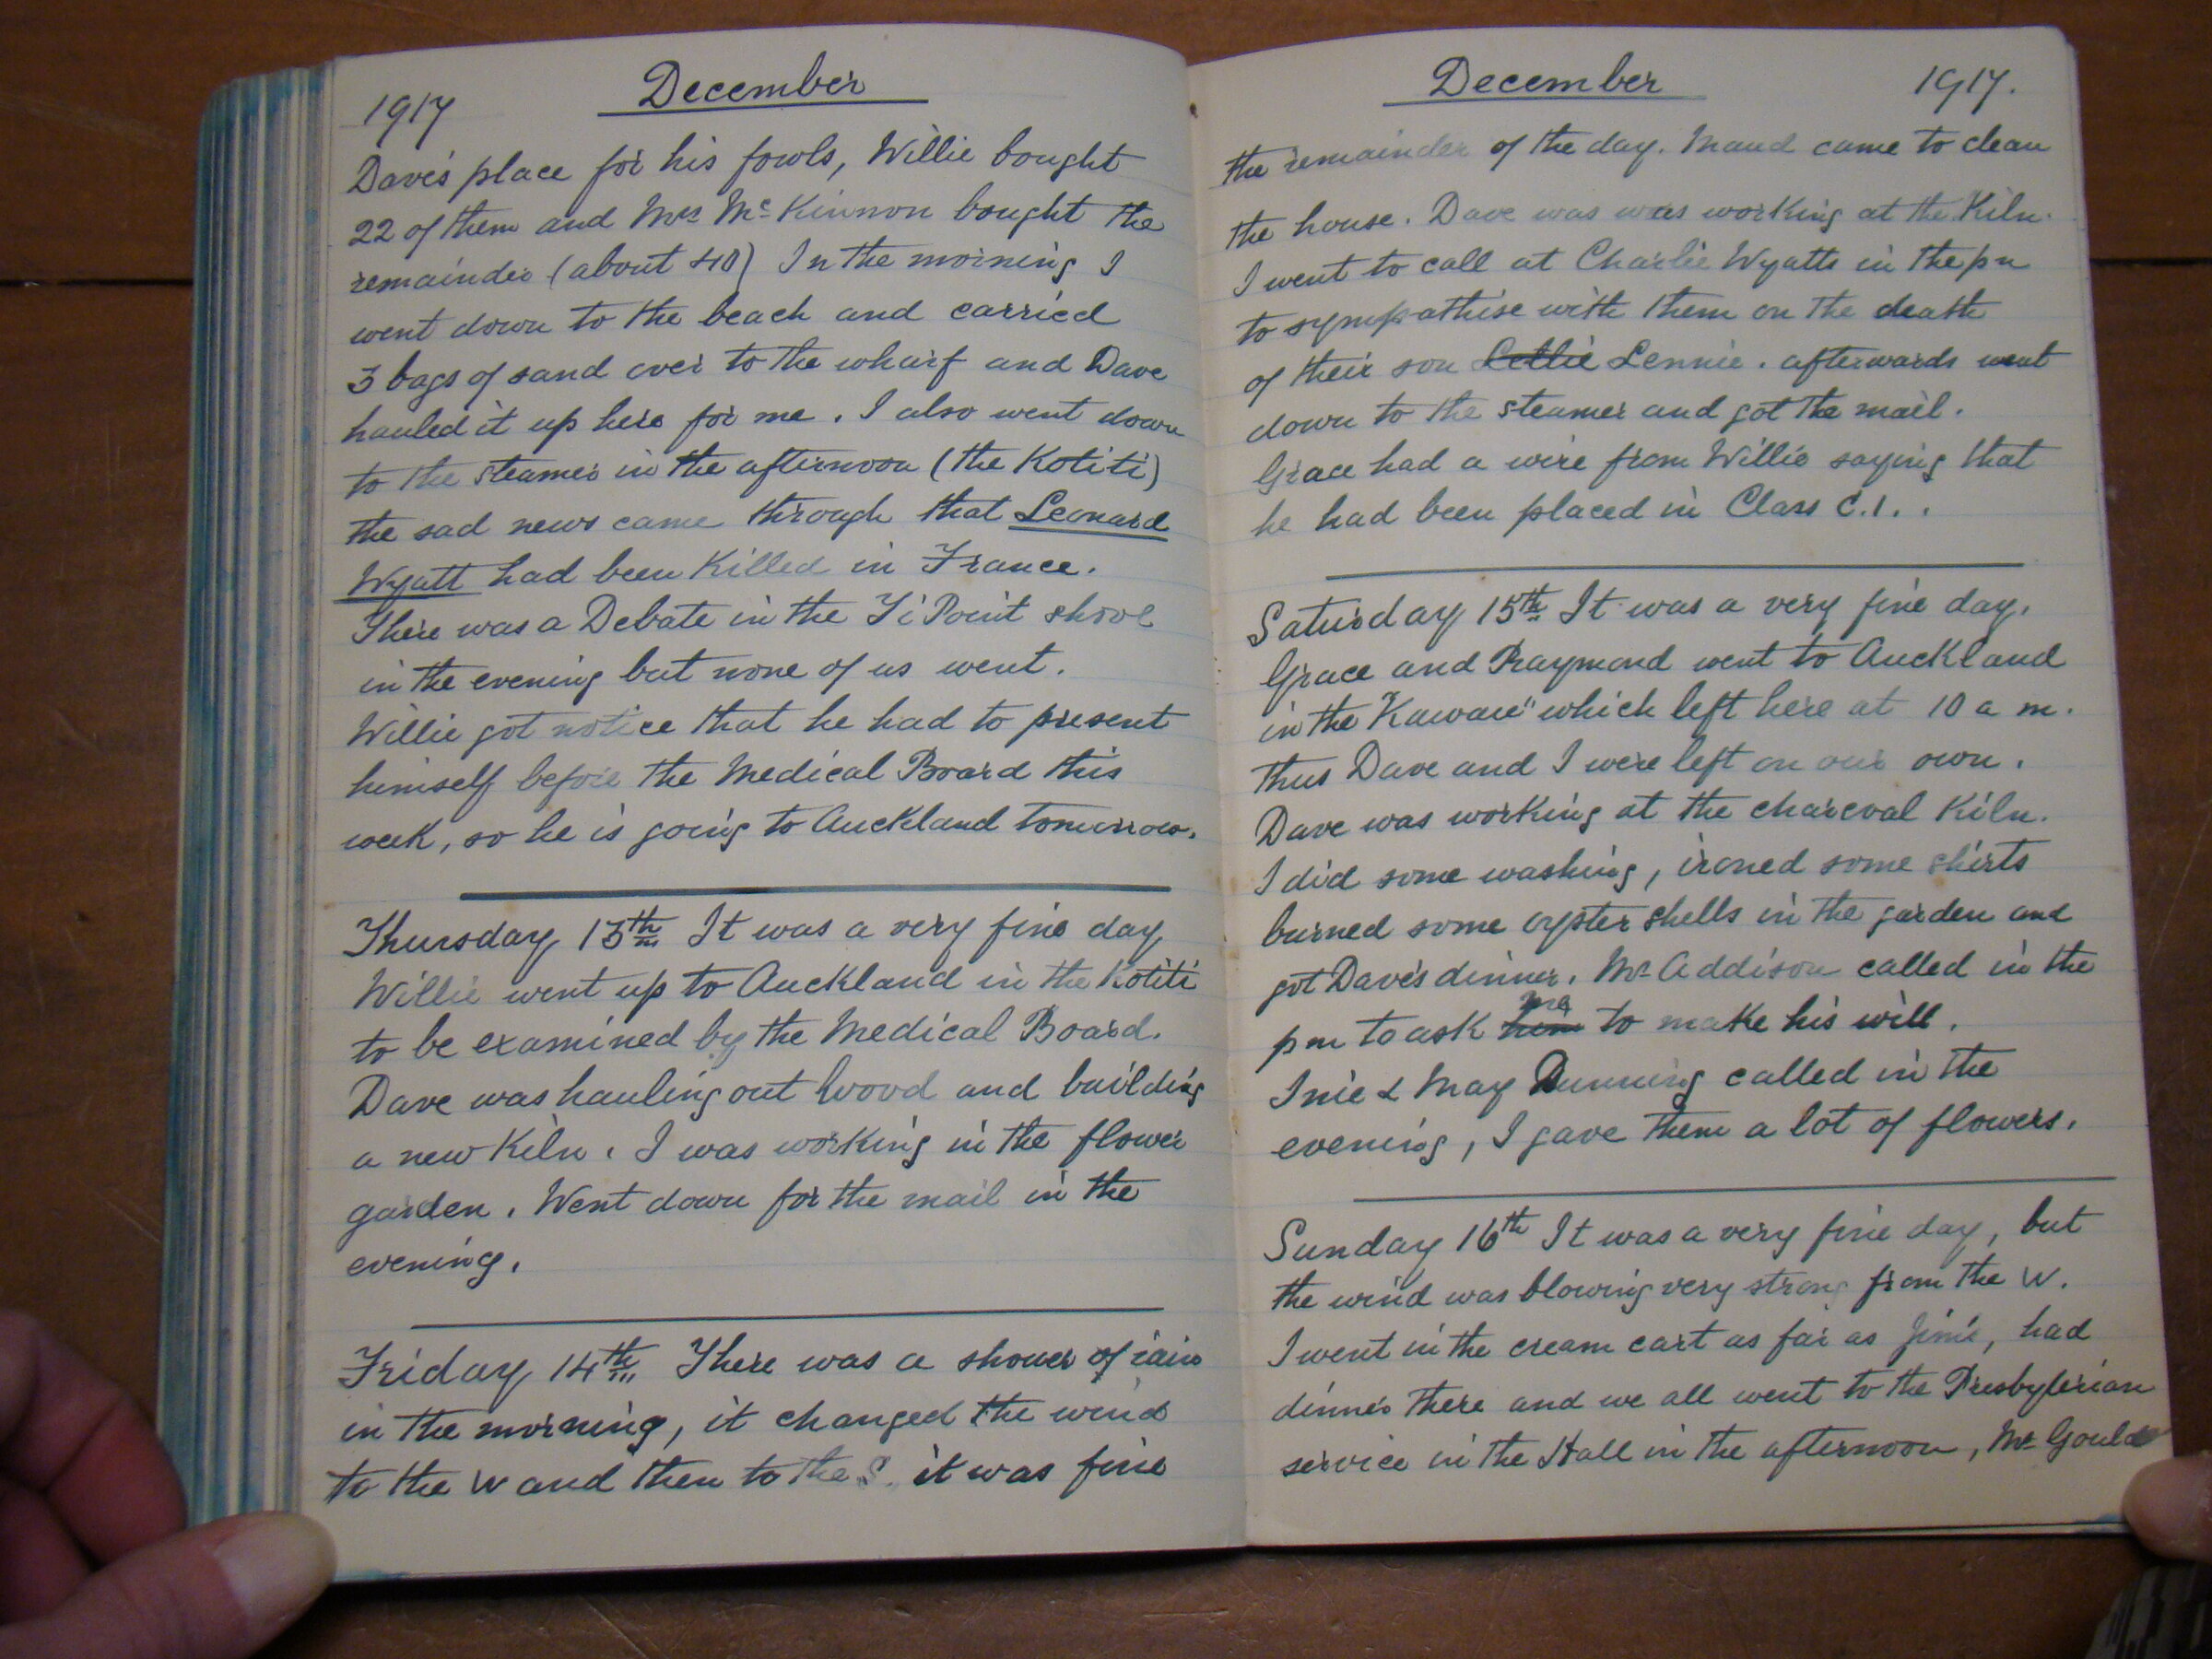 December
1917
Dave's place for his fowls, Willie bought
22 of them and Mrs McKinnon bought the
remainder (about 40) In the morning I
went down to the beach and carried
3 bags of sand over to the wharf and Dave
hauled it up here for me. I also went down
to the steamer in the afternoon (the Kotiti)
the sad news came through that Leonard
Wyatt had been Killed in France.
There was a Debate in the Ti Point shool
in the evening but none of us went.
Willie got notice that he had to present
himself before the Medical Board this
week, so he is going to Auckland tomorrow.
Thursday 13th It was a very fine day
Willie went up to Auckland in the Kotiti
to be examined by the Medical Board.
Dave was hauling out wood and building
a new Kiln. I was working in the flower
garden. Went down for the mail in the
evening.
Friday 14th There was a shower of rain
in the morning, it changed the wind
to the W and then to the S. it was fine
December 1917.
the remainder of the day. Maud came to clean
the house. Dave was was working at the Kiln.
I went to call at Charlie Wyatts in the pm
to sympathise with them on the death
of their son Lettie Lennie. afterwards went
down to the steamer and got the mail.
Grace had a wire from Willie saying that
he had been placed in Class C.1..
Saturday 15th It was a very fine day.
Grace and Raymond went to Auckland
in the "Kawau" which left here at 10 a m.
thus Dave and I were left on our own.
Dave was working at the charcoal Kiln.
I did some washing, ironed some shirts
burned some oyster shells in the garden and
got Dave's dinner. Mr Addison called in the
pm to ask him me to make his will.
Inie & May Dunning called in the
evening, I gave them a lot of flowers.
Sunday 16th It was a very fine day, but
the wind was blowing very strong from the W.
I went in the cream cart as far as Jim's, had
dinner there and we all went to the Presbyterian
service in the Hall in the afternoon, Mr Gould